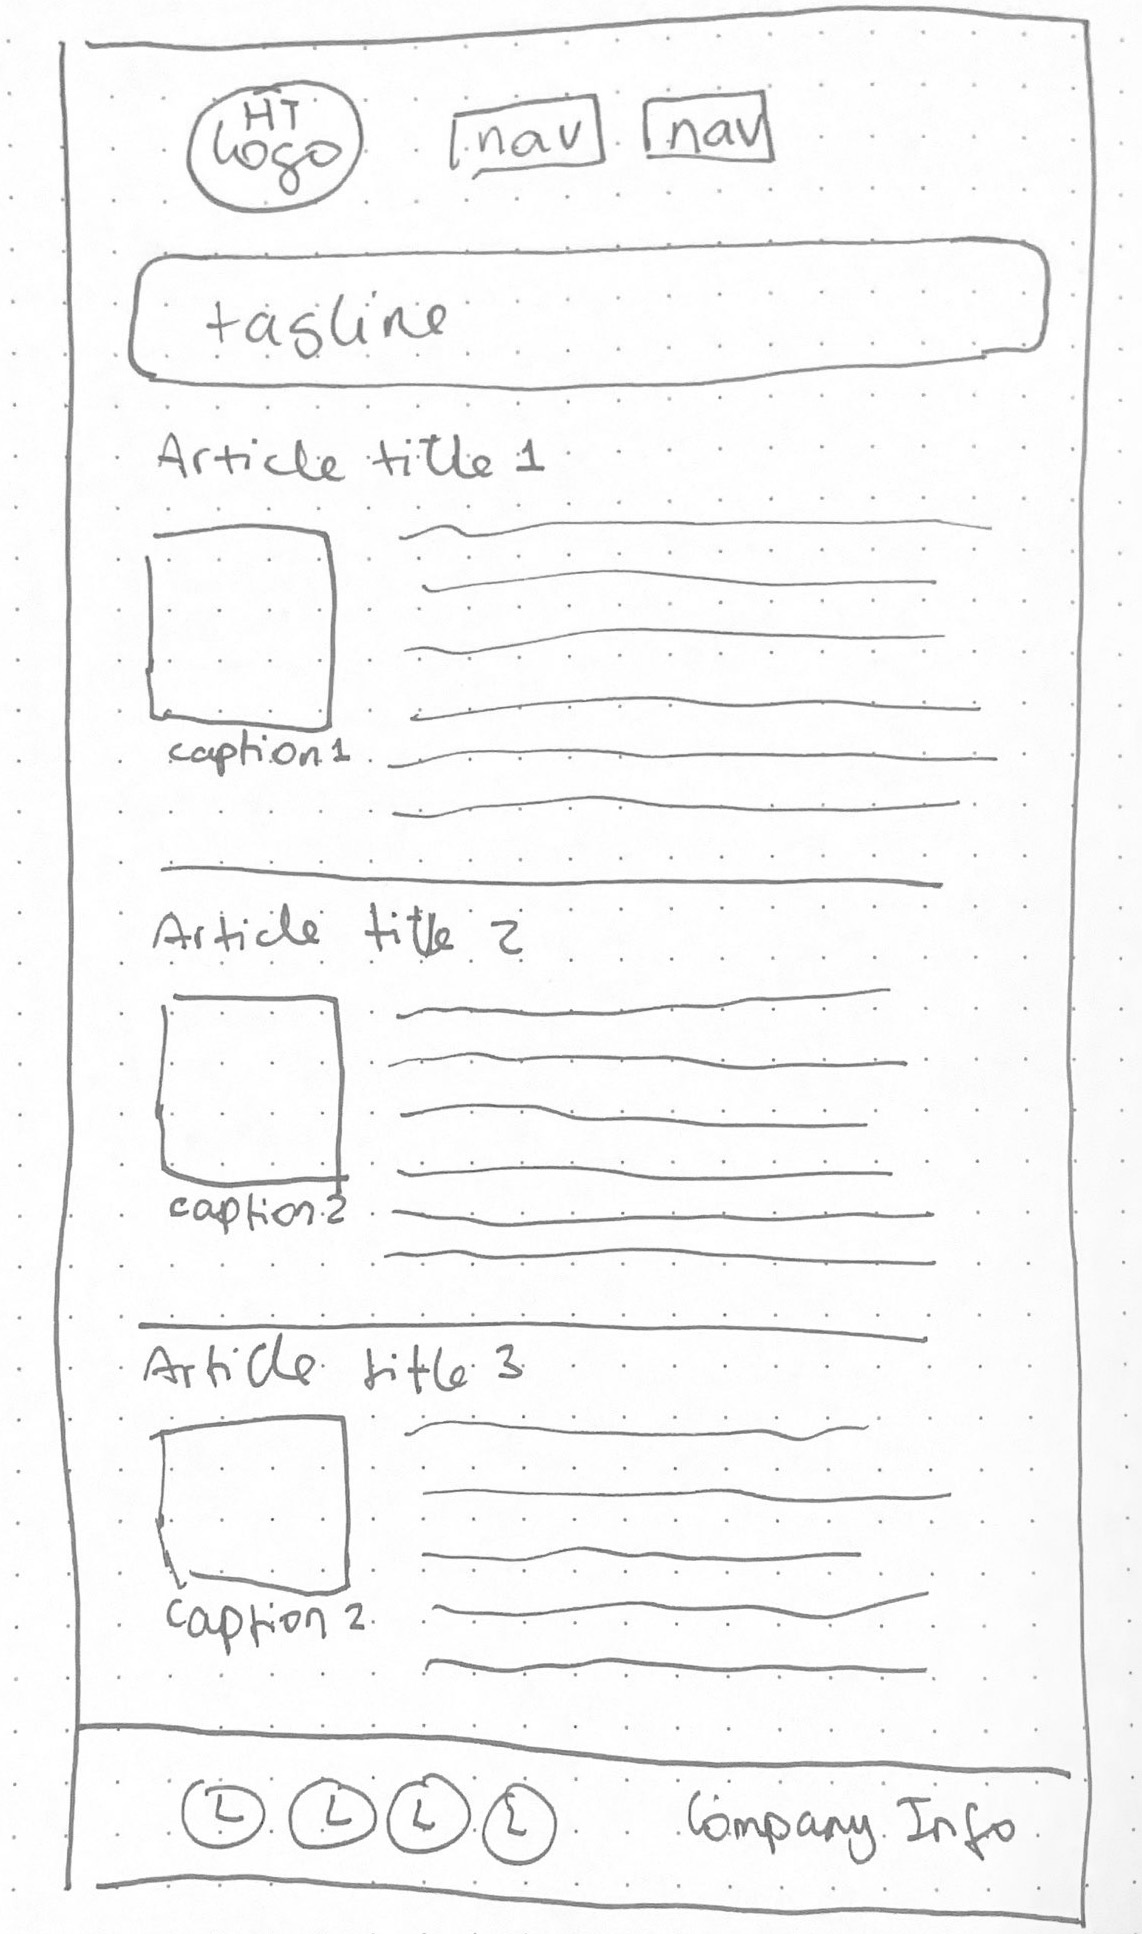 HT
Logo
nav nav
tagline
Article title 1
caption 1
Article title 2
caption 2
Article title 3
caption 2
L L L L
Company Info